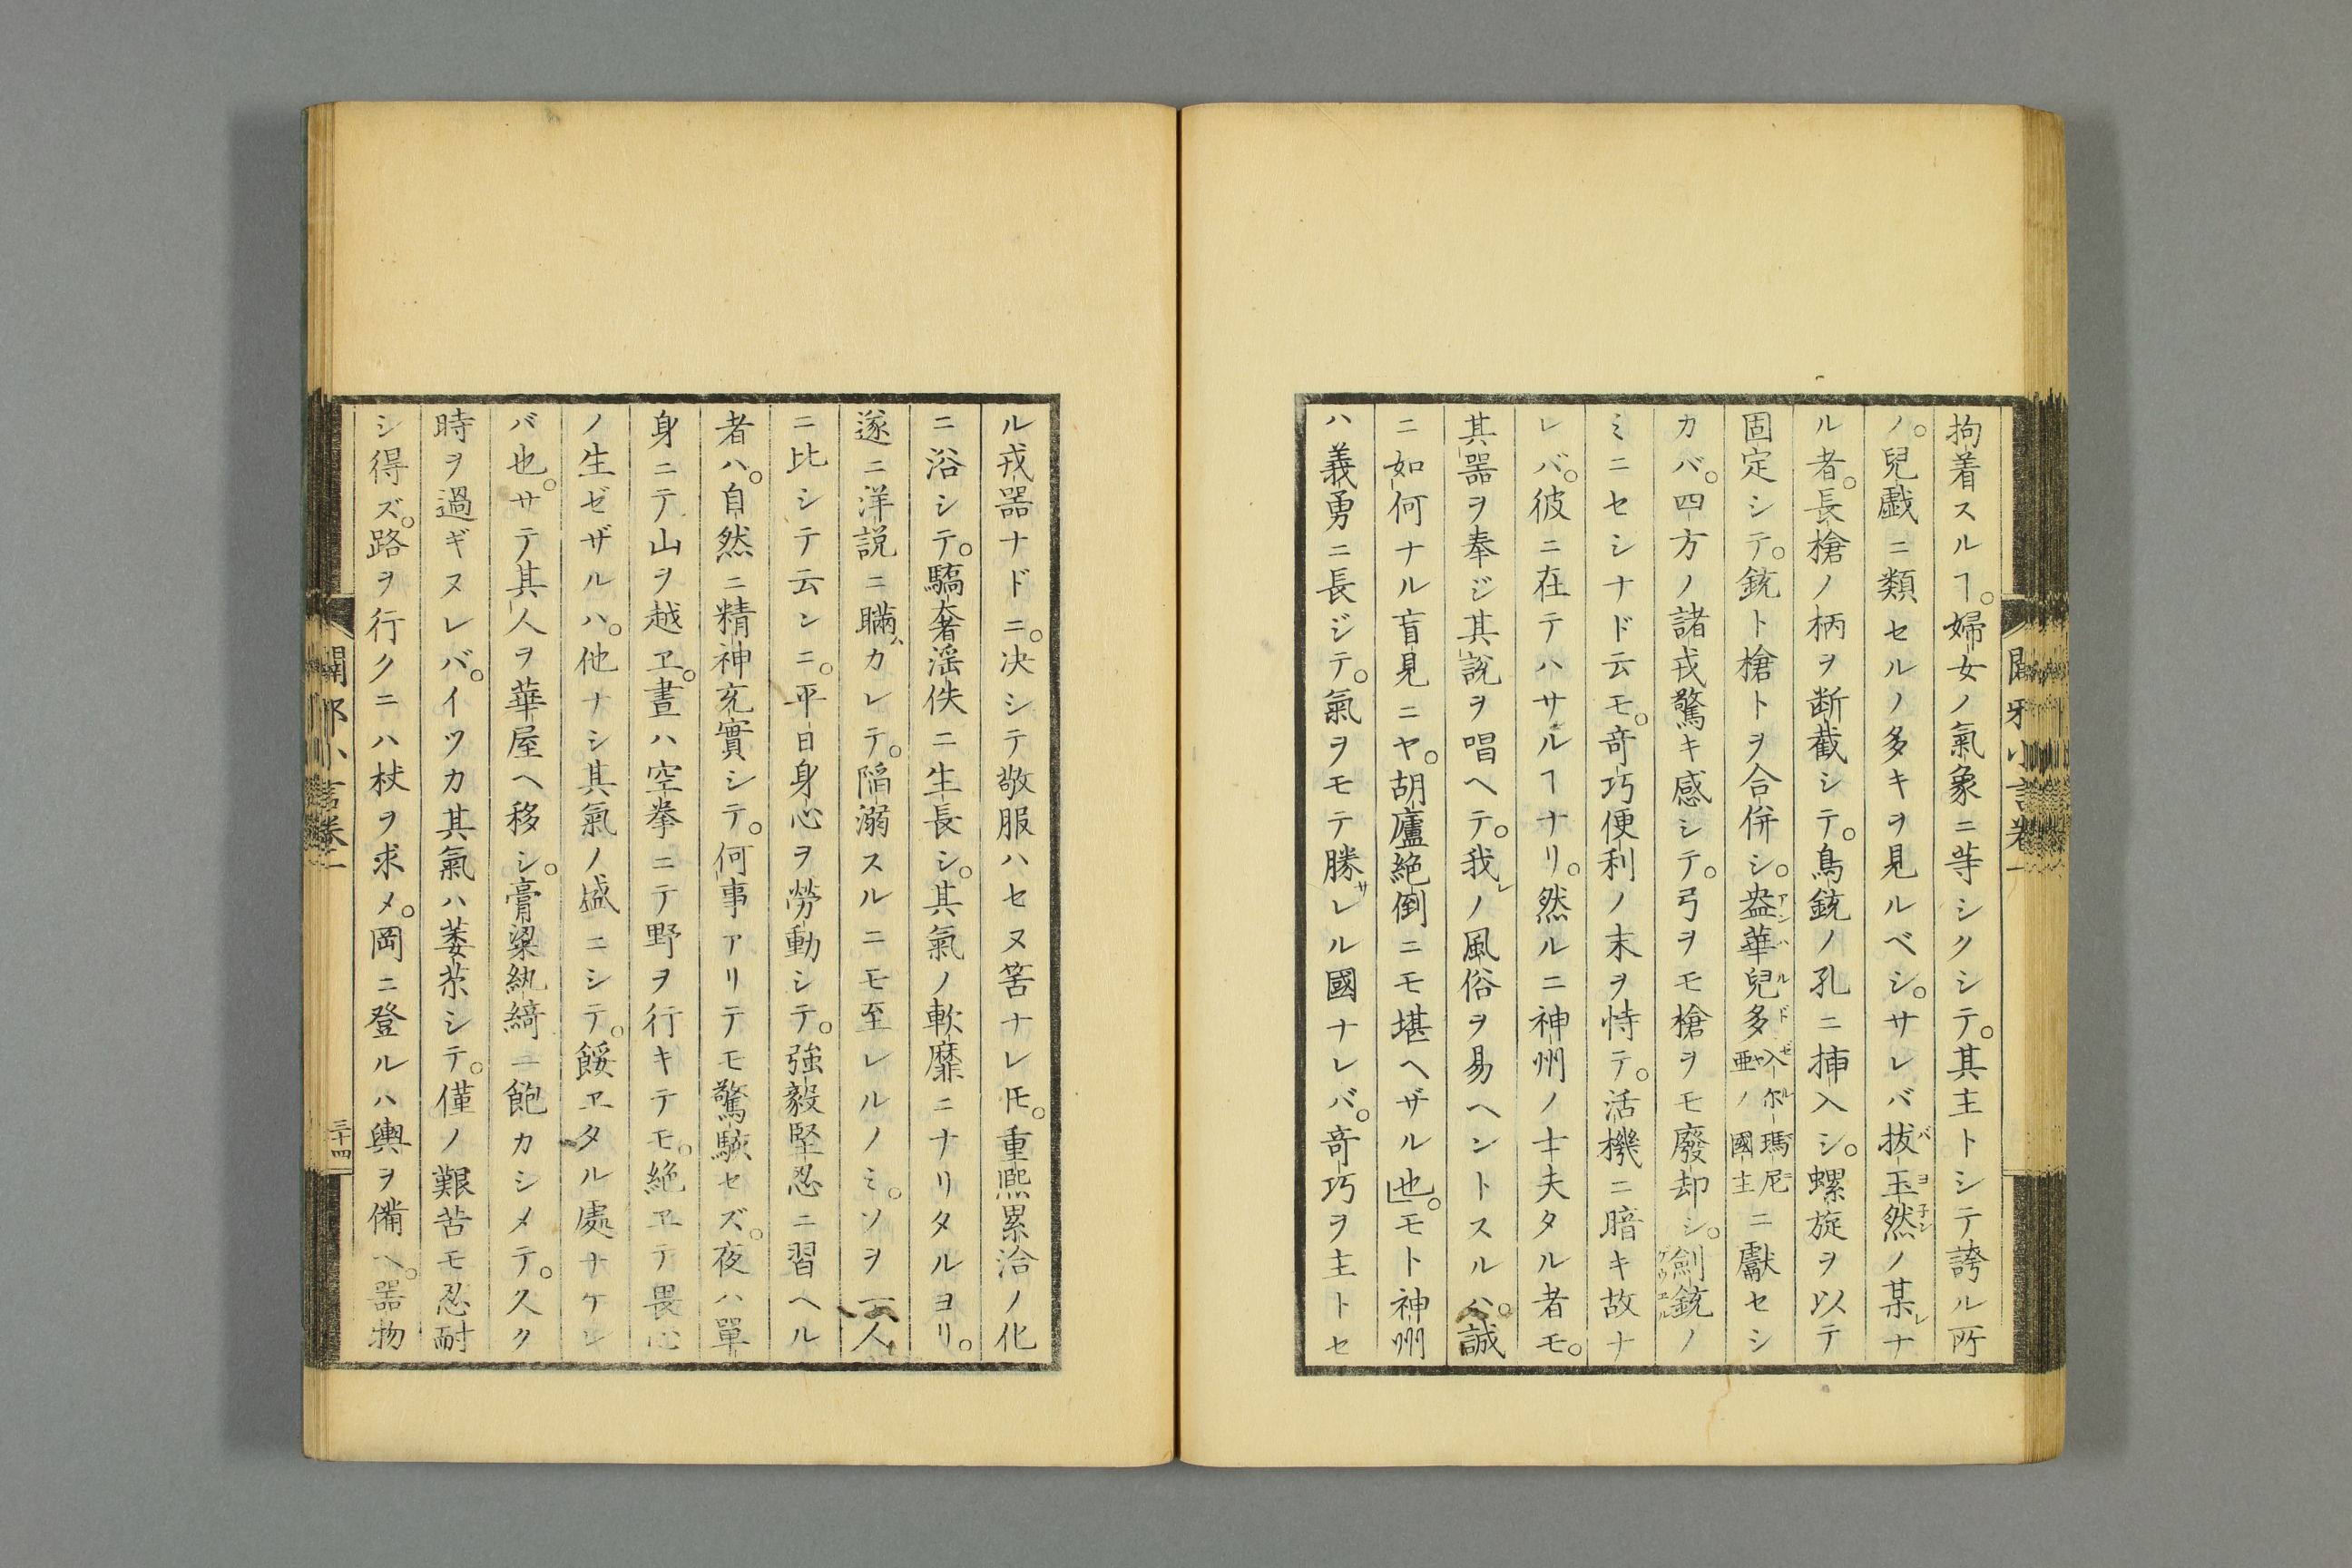 拘着スルヿ。婦女ノ氣象ニ等シクシテ。其主トシテ誇ル所
ノ。兒戯ニ類セルノ多キヲ見ルベシ。サレバ拔玉然ノ某レナ
ル者。長槍ノ柄ヲ断截シテ。鳥銃ノ孔ニ挿入シ。螺旋ヲ以テ
固定シテ。銃ト槍トヲ合併シ。盎華兒多入尓瑪尼亜ノ國主ニ獻セシ
カバ。四方ノ諸戎驚キ感シテ。弓ヲモ槍ヲモ廢却シ。劍銃ノ
ミニセシナド云モ。竒巧便利ノ末ヲ恃テ。活機ニ暗キ故ナ
レバ。彼ニ在テハサルヿナリ。然ルニ神州ノ士夫タル者モ。
其噐ヲ奉ジ其說ヲ唱ヘテ。我レノ風俗ヲ易ヘントスルハ。誠
ニ如何ナル盲見ニヤ。胡廬絶倒ニモ堪ヘザル也。モト神州
ハ義勇ニ長ジテ。氣ヲモテ勝サレル國ナレバ。竒巧ヲ主トセ
ル戎噐ナドニ。决シテ敬服ハセヌ筈ナレ𪜈。重熈累洽ノ化
ニ浴シテ。驕奢滛佚ニ生長シ。其氣ノ軟靡ニナリタルヨリ。
遂ニ洋説ニ瞞カレテ。陷溺スルニモ至レルノミ。ソヲ一人
ニ比シテ云ンニ。平日身心ヲ勞動シテ。強毅堅忍ニ習ヘル
者ハ。自然ニ精神充實シテ。何事アリテモ驚駭セズ。夜ハ單
身ニテ山ヲ越ヱ。晝ハ空拳ニテ野ヲ行キテモ。絶ヱテ畏心
ノ生ゼザルハ。他ナシ其氣ノ盛ニシテ。餒ヱタル處ナケレ
バ也。サテ其人ヲ華屋ヘ移シ。膏粱紈綺ニ飽カシメテ。久ク
時ヲ過ギヌレバ。イツカ其氣ハ萎苶シテ。僅ノ艱苦モ忍耐
シ得ズ。路ヲ行クニハ杖ヲ求メ。岡ニ登ルハ輿ヲ備ヘ。噐物
闢邪小言卷二
三十四